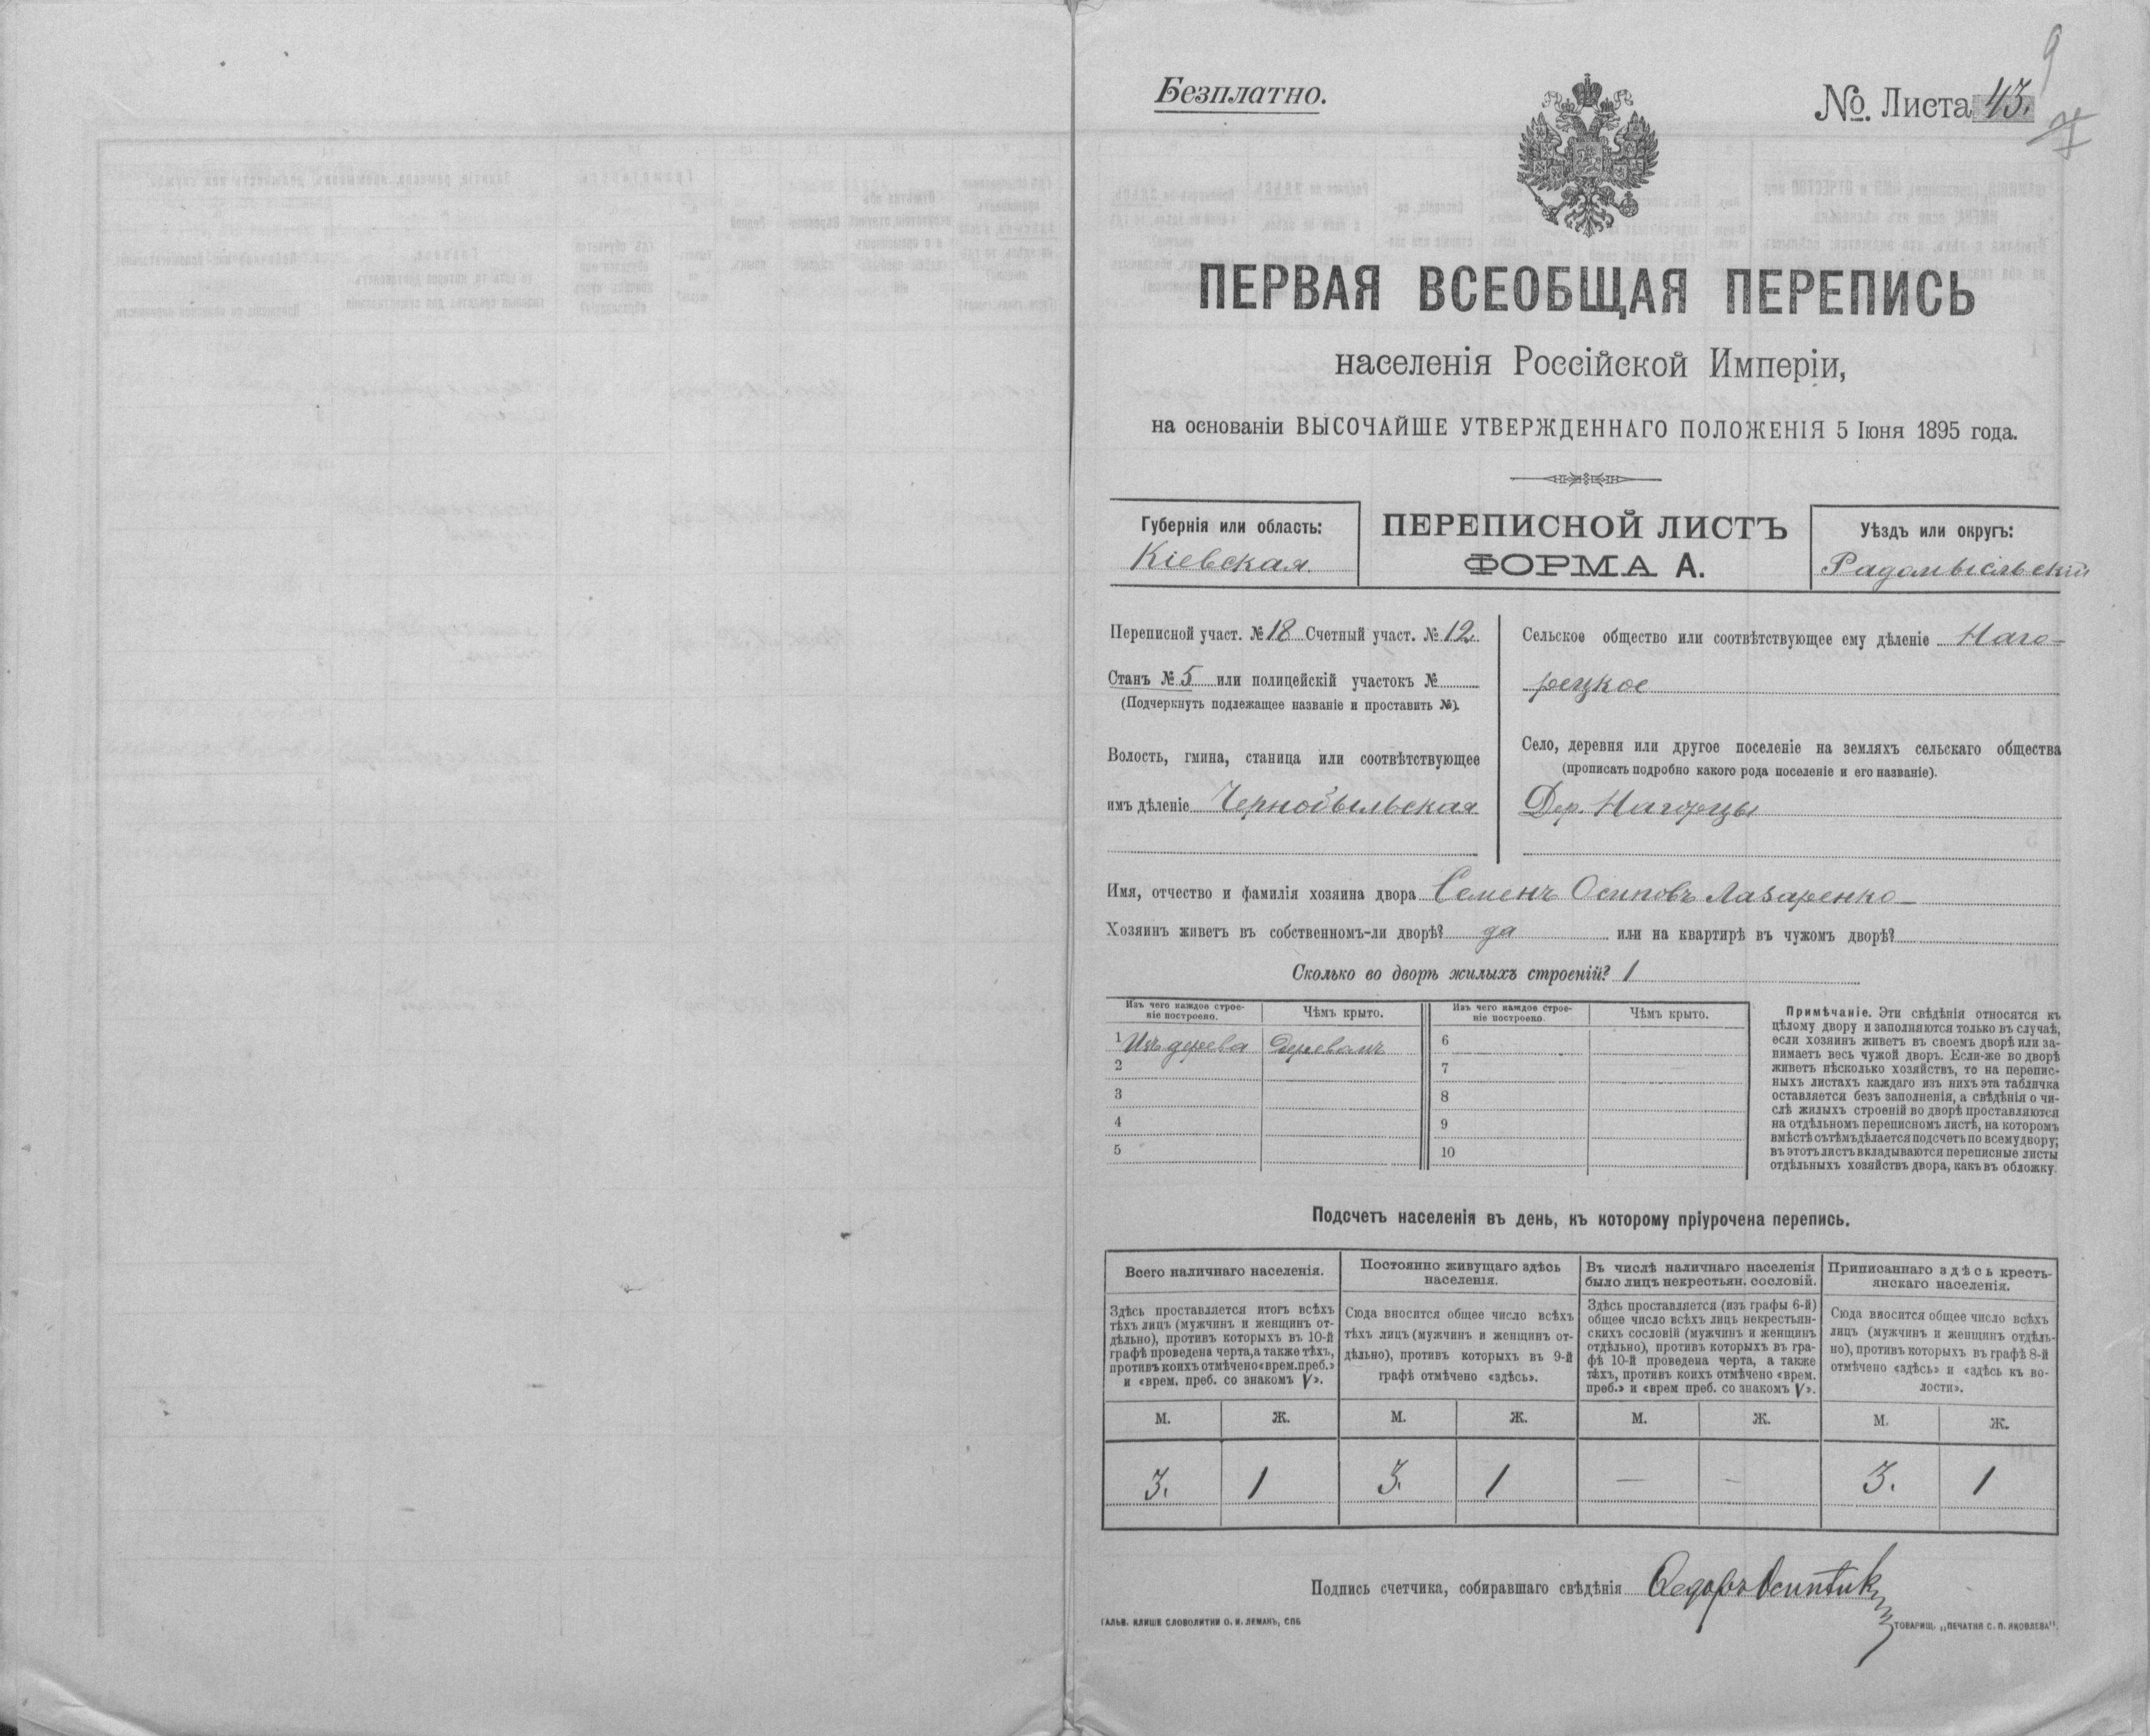 Безплатно.
№. Листа 43.
9
ПЕРВАЯ ВСЕОБЩАЯ ПЕРЕПИСЬ
населенія Россійской Имперіи,
на основаніи ВЫСОЧАЙШЕ УТВЕРЖДЕННАГО ПОЛОЖЕНІЯ 5 Іюня 1895 года.
Губернія или область:
Кіевская.
ПЕРЕПИСНОЙ ЛИСТЪ
ФОРМА А.
Уѣздъ или округъ:
Радомысльскій
Переписной участ. № 18 Счетный участ. № 12
Станъ № 5 или полицейскій участокъ №
(Подчеркнуть подлежащее названіе и проставить №).
Волость, гмина, станица или соотвѣтствующее
имъ дѣленіе Чернобыльская
Сельское общество или соотвѣтствующее ему дѣленіе Наго-
рецкое
Село, деревня или другое поселеніе на земляхъ сельскаго общества
(прописать подробно какого рода поселеніе и его названіе).
Дер. Нагорцы
Имя, отчество и фамилія хозяина двора Семенъ Осиповъ Лазаренко
Хозяинъ живетъ въ собственномъ-ли дворѣ? да или на квартирѣ въ чужомъ дворѣ?
Сколько во дворѣ жилыхъ строеній? 1
Изъ чего каждое строе-
ніе построено.
Чѣмъ крыто.
Изъ чего каждое строе-
ніе построено.
Чѣмъ крыто.
1 Изъ дерева Деревомъ 6
2 7
3 8
4 9
5 10
Примѣчаніе. Эти свѣдѣнія относятся къ
цѣлому двору и заполняются только въ случаѣ,
если хозяинъ живетъ въ своемъ дворѣ или за-
нимаетъ весь чужой дворъ. Если-же во дворѣ
живетъ нѣсколько хозяйствъ, то на перепис-
ныхъ листахъ каждаго изъ нихъ эта табличка
оставляется безъ заполненія, а свѣдѣнія о чи-
слѣ жилыхъ строеній во дворѣ проставляются
на отдѣльномъ переписномъ листѣ, на которомъ
вмѣстѣ съ тѣмъ дѣлается подсчетъ по всему двору;
въ этотъ листъ вкладываются переписные листы
отдѣльныхъ хозяйствъ двора, какъ въ обложку.
Подсчетъ населенія въ день, къ которому пріурочена перепись.
Всего наличнаго населенія.
Здѣсь проставляется итогъ всѣхъ
тѣхъ лицъ (мужчинъ и женщинъ от-
дѣльно), противъ которыхъ въ 10-й
графѣ проведена черта, а также тѣхъ,
противъ коихъ отмѣчено «врем. преб.»
и «врем. преб. со знакомъ V».
Постоянно живущаго здѣсь
населенія.
Сюда вносится общее число всѣхъ
тѣхъ лицъ (мужчинъ и женщинъ от-
дѣльно), противъ которыхъ въ 9-й
графѣ отмѣчено «здѣсь».
Въ числѣ наличнаго населенія
было лицъ некрестьян. сословій.
Здѣсь проставляется (изъ графы 6-й)
общее число всѣхъ лицъ некрестьян-
скихъ сословій (мужчинъ и женщинъ
отдѣльно), противъ которыхъ въ гра-
фѣ 10-й проведена черта, а также
тѣхъ, противъ коихъ отмѣчено «врем.
преб.» и «врем преб. со знакомъ V».
Приписаннаго здѣсь кресть-
янскаго населенія.
Сюда вносится общее число всѣхъ
лицъ (мужчинъ и женщинъ отдѣль-
но), противъ которыхъ въ графѣ 8-й
отмѣчено «здѣсь» и «здѣсь къ во-
лости».
М. Ж. М. Ж. М. Ж. М. Ж.
3. 1 3. 1 — — 3. 1
Подпись счетчика, собиравшаго свѣдѣнія Федоръ
ГАЛЬВ. КЛИШЕ СЛОВОЛИТНИ О. И. ЛЕМАНЪ, СПБ
ТОВАРИЩ. „ПЕЧАТНЯ С. П. ЯКОВЛЕВА".